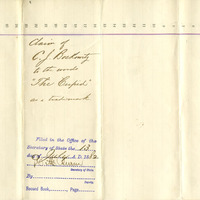 Claim of
C. J. Berkowitz
to the words
"The Cupid"
as a trademark
Filed in the Office of the
Secretary of State the 13
day of July A. D. 1912
Secretary of State
By
Deputy
Record Book , Page